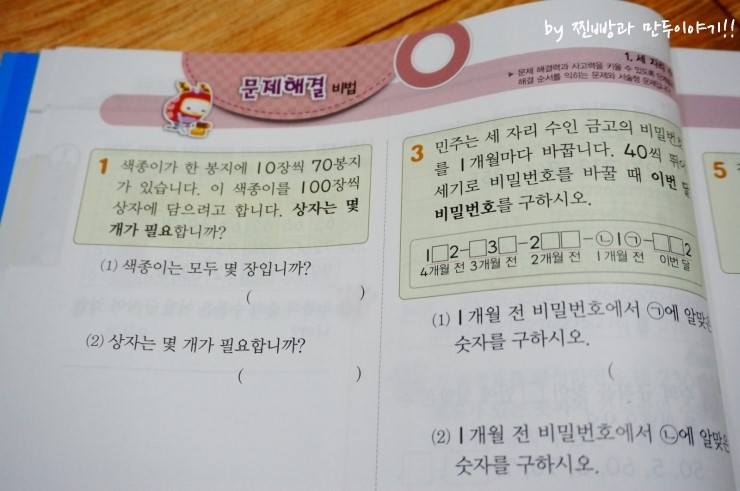 by 찐빵과 만두이야기!!
문제해결 비법
1. 세 자리
▶ 문제 해결력과 사고력을 키울 수 있도록
해결 순서를 익히는 문제와 서술형
1 색종이가 한 봉지에 10장씩 70봉지
가 있습니다. 이 색종이를 100장씩
상자에 담으려고 합니다. 상자는 몇
개가 필요합니까?
(1) 색종이는 모두 몇 장입니까?
( )
(2) 상자는 몇 개가 필요합니까?
( )
3 민주는 세 자리 수인 금고의 비밀번호
를 1개월마다 바꿉니다. 40씩 뛰어
세기로 비밀번호를 바꿀 때 이번 달
비밀번호를 구하시오.
1□2-□3□-2□□-㉡1㉠-□□2
4개월 전 3개월 전 2개월 전 1개월 전 이번 달
(1) 1개월 전 비밀번호에서 ㉠에 알맞은
숫자를 구하시오.
(
(2) 1개월 전 비밀번호에서 ㉡에 알맞은
숫자를 구하시오.
5